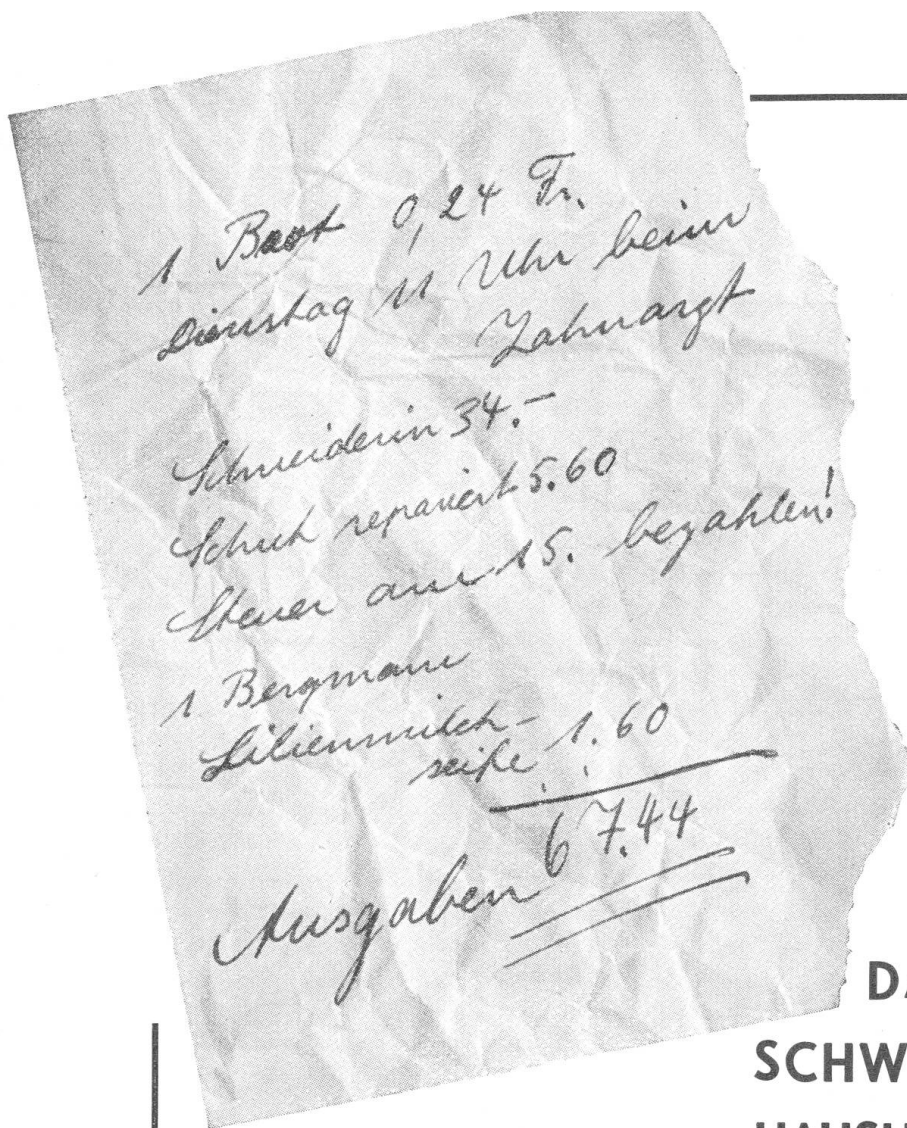 1 Brot 0,24 Fr.
Dienstag 11 Uhr beim
Zahnarzt
Schneiderin 34.-
Schuh repariert 5.60
Steuer am 15. bezahlen!
1 Bergmann
Lilienmilch-
seife 1.60
Ausgaben 67.44
DA
SCHW